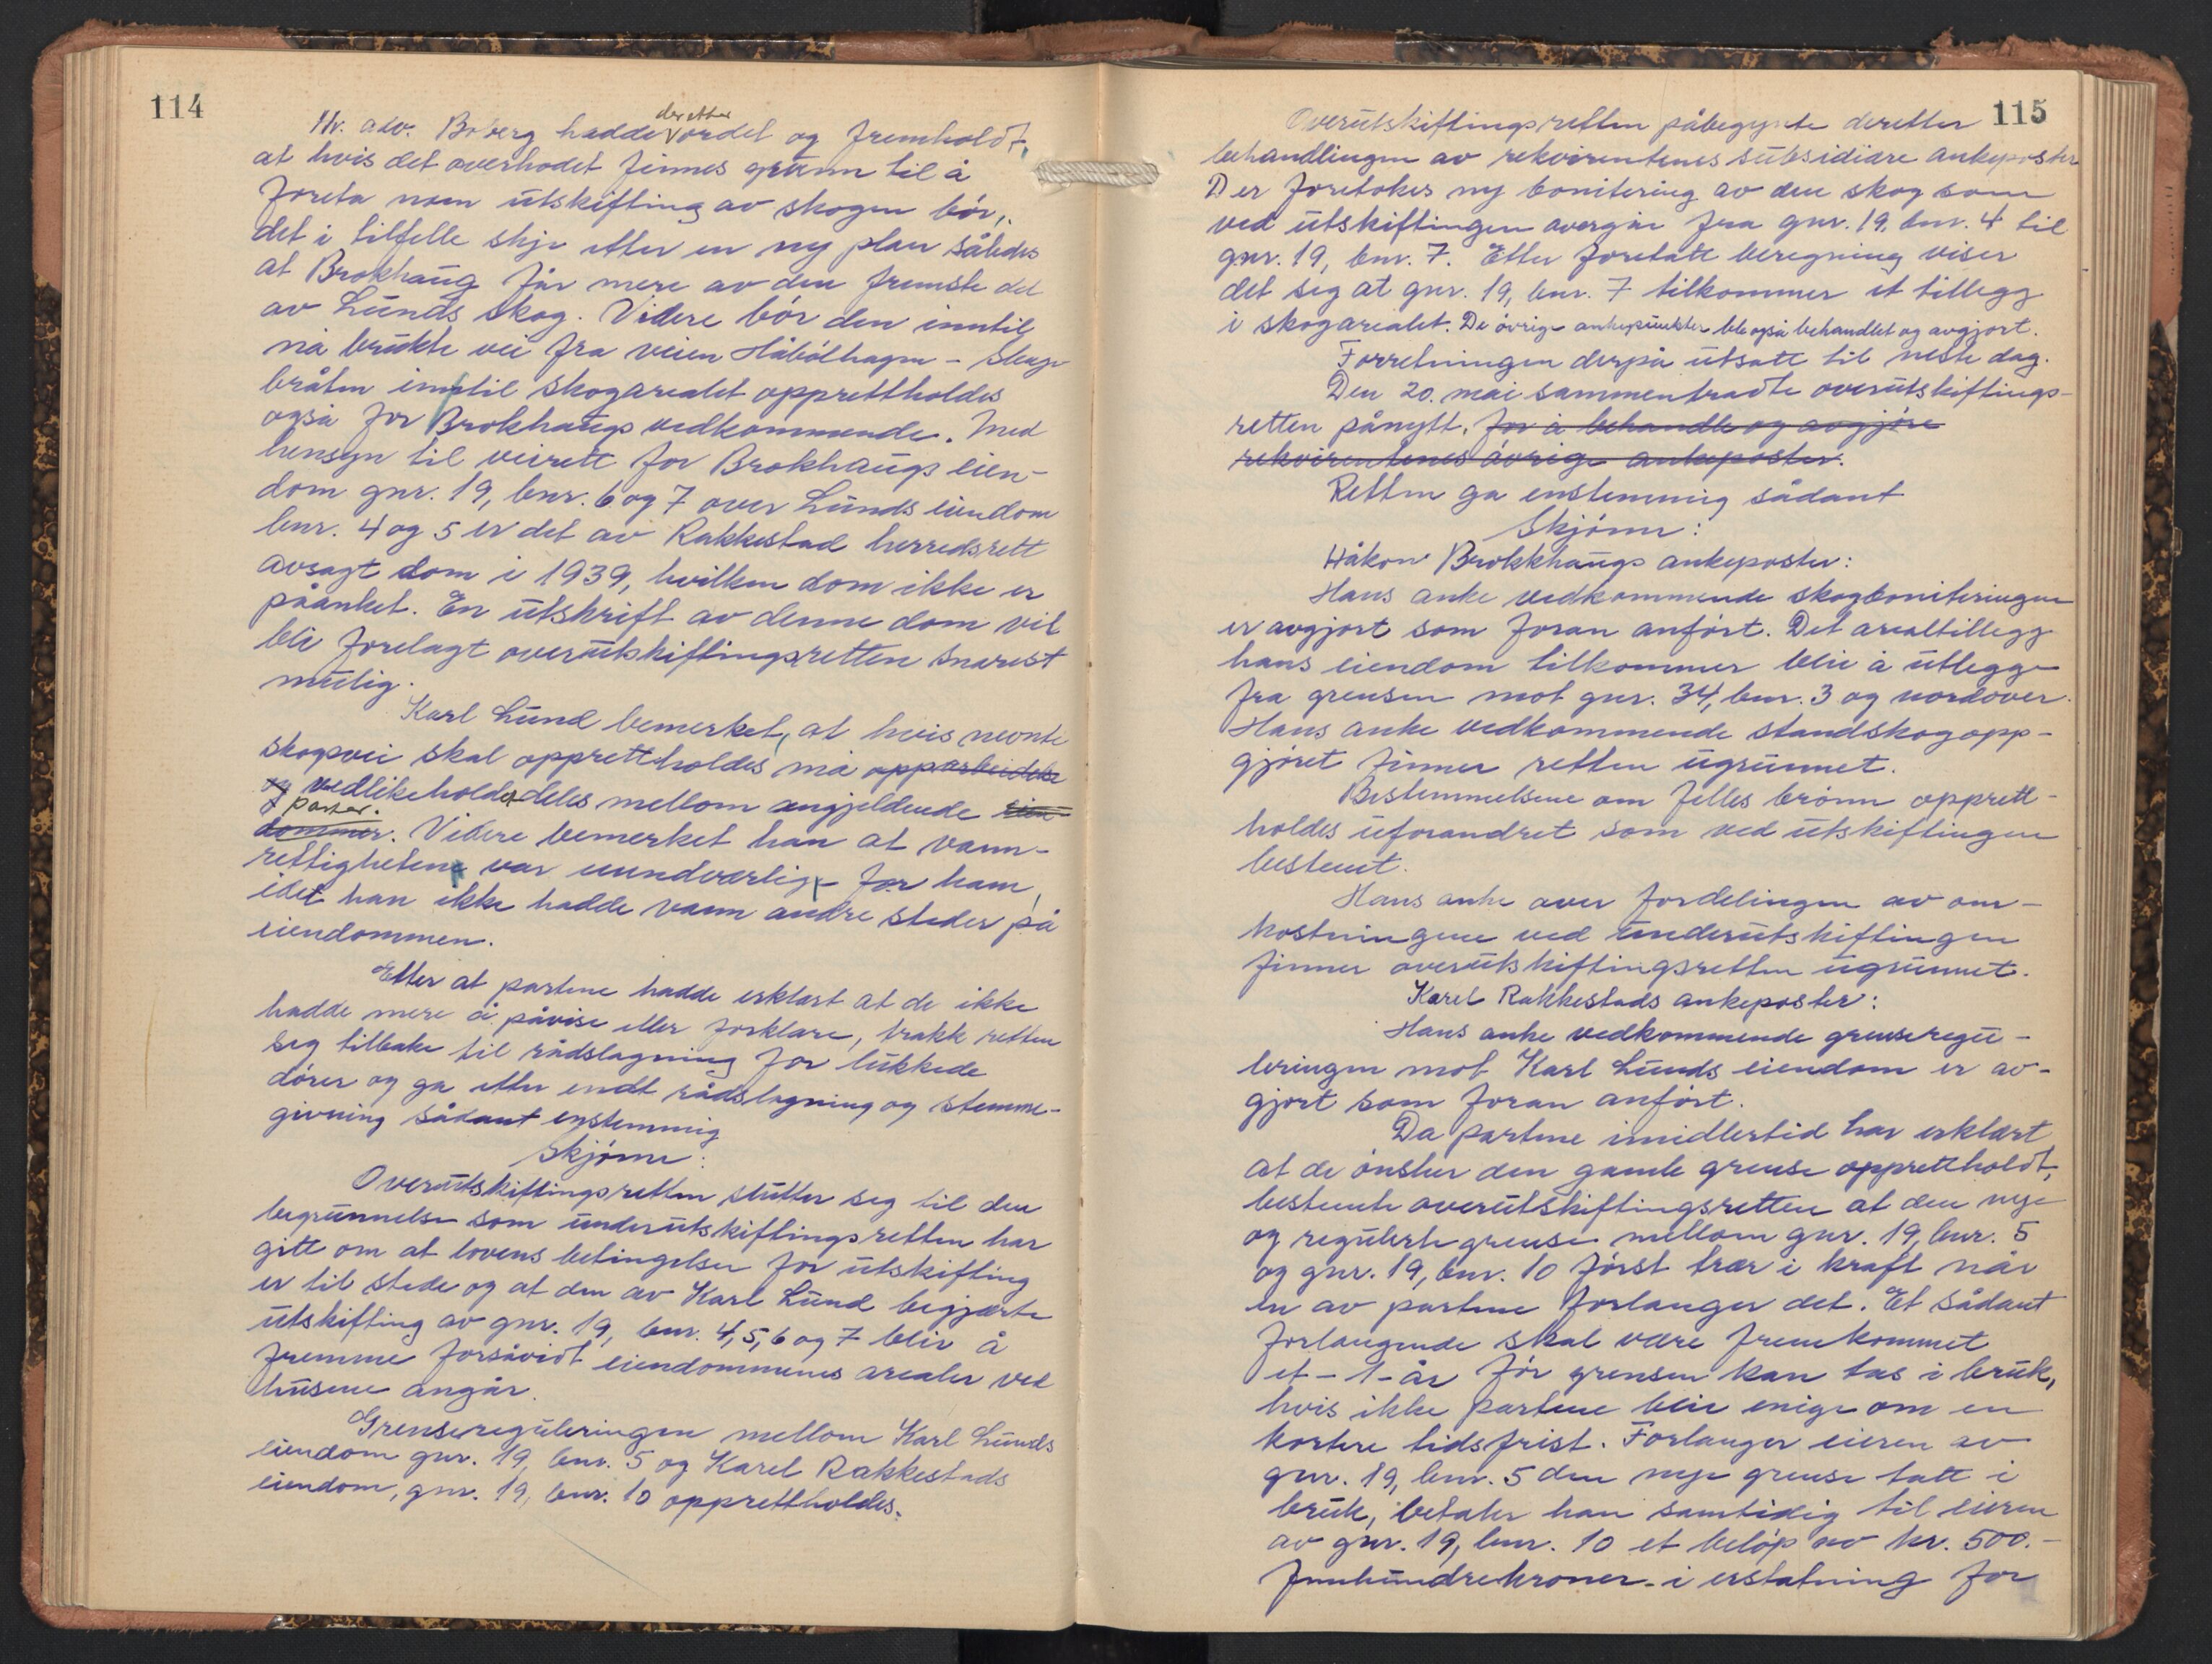 114
Hr. adv. Boberg hadde deretter ordet og fremholdt,
at hvis det overhodet finnes grunn til å
foreta noen utskifting av skogen bør,
det i tilfelle skje etter en ny plan således
at Brokhaug får mere av den fremste del
av Lunds skog. Videre bør den inntil
nå brukte vei fra veien Håbølhagen -
bråten inntil skogarealet opprettholdes
også for Brokhaugs vedkommende. Med
hensyn til veirett for Brokhaugs eien-
dom gnr. 19, bnr. 6 og 7 over Lunds eiendom
bnr. 4 og 5 er det av Rakkestad herredsrett
avsagt dom i 1939, hvilken dom ikke er
påanket. En utskrift av denne dom vil
bli forelagt overutskiftingsretten snarest
mulig.
Karl Lund bemerket, at hvis nevnte
skogsvei skal opprettholdes må opparbeidelse
og vedlikehold deles mellom angjeldende eien-
parter.
dommer. Videre bemerket han at vann-
rettighetene var uundværlig for ham,
idet han ikke hadde vann andre steder på
eiendommen.
Etter at partene hadde erklært at de ikke
hadde mere å påvise eller forklare, trakk retten
seg tilbake til rådslagning for lukkede
dører og ga etter endt rådslagning og stemme-
givning sådant enstemmig
Skjønn:
Overutskiftingsretten slutter seg til den
begrunnelse som underutskiftingsretten har
gitt om at lovens betingelser for utskifting
er til stede og at den av Karl Lund begjærte
utskifting av gnr. 19, bnr. 4, 5, 6 og 7 blir å
fremme forsåvidt eiendommenes arealer ved
husene angår.
Grensereguleringen mellom Karl Lunds
eiendom gnr. 19, bnr. 5 og Karel Rakkestads
eiendom, gnr. 19, bnr. 10 opprettholdes.
115
Overutskiftingsretten påbegynte deretter
behandlingen av rekvirentenes subsidiære ankeposter
Der foretokes ny bonitering av den skog som
ved utskiftingen overgår fra gnr. 19, bnr. 4 til
gnr. 19, bnr. 7. Etter foretatt beregning viser
det seg at gnr. 19, bnr. 7 tilkommer et tillegg
i skogarealet. De øvrige ankepunkter ble også behandlet og avgjort.
Forretningen derpå utsatt til neste dag.
Den 20. mai sammentradte overutskiftings-
retten pånytt, for å behandle og avgjøre
rekvirentenes øvrige ankeposter.
Retten ga enstemmig sådant
Skjønn:
Håkon Brokkhaugs ankeposter:
Hans anke vedkommende skogboniteringen
er avgjort som foran anført. Det arealtillegg
hans eiendom tilkommer blir å utlegge
fra grensen mot gnr. 34, bnr. 3 og nordover.
Hans anke vedkommende standskogopp-
gjøret finner retten ugrunnet.
Bestemmelsene om felles brønn opprett-
holdes uforandret som ved utskiftingen
bestemt.
Hans anke over fordelingen av om-
kostningene ved underutskiftingen
finner overutskiftingsretten ugrunnet.
Karel Rakkestads ankeposter:
Hans anke vedkommende grenseregu-
leringen mot Karl Lunds eiendom er av-
gjort som foran anført.
Da partene imidlertid har erklært
at de ønsker den gamle grense opprettholdt,
bestemte overutskiftingsretten at den nye
og regulerte grense mellom gnr. 19, bnr. 5
og gnr. 19, bnr. 10 først trær i kraft når
en av partene forlanger det. Et sådant
forlangende skal være fremkommet
et - 1 - år før grensen kan tas i bruk,
hvis ikke partene blir enige om en
kortere tidsfrist. Forlanger eieren av
gnr. 19, bnr. 5 den nye grense tatt i
bruk, betaler han samtidig til eieren
av gnr. 19, bnr. 10 et beløp av kr. 500.-
femhundrekroner - i erstatning for